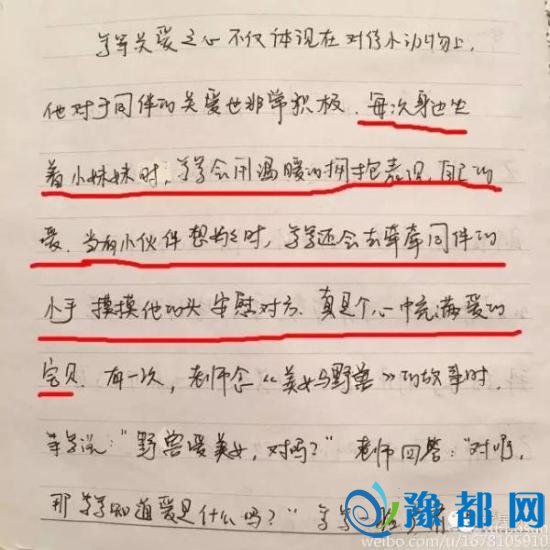 等等关爱之心不仅体现在对待小动物上，
他对于同伴的关爱也非常积极，每次身边坐
着小妹妹时，等等会用温暖的拥抱表现自己的
爱，当有小伙伴想妈妈时，等等还会去牵牵同伴的
小手 摸摸他的头 安慰对方，真是个心中充满爱的
宝贝，有一次，老师念《美女与野兽》的故事时，
等等说："野兽爱美女，对吗？" 老师回答："对啊，
那等等知道爱是什么吗？" 等等
豫都网
weibo.com/ti/1678105910